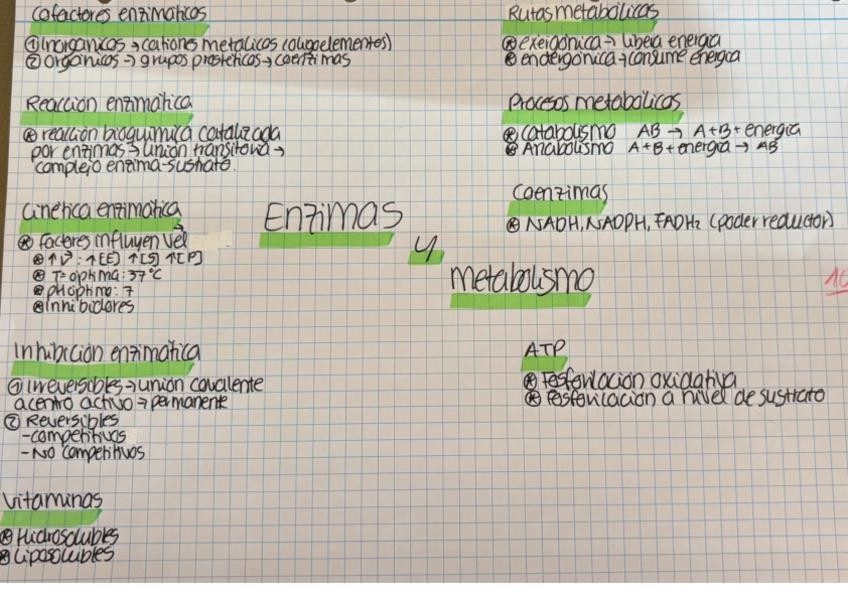 Cofactores enzimáticos
① Inorgánicos → cationes metálicos (oligoelementos)
② orgánicos → grupos prostéticos → coenzimas
Reacción enzimática
⊛ reacción bioquímica catalizada
por enzimas → unión transitoria →
complejo enzima-sustrato.
Cinética enzimática
⊛ Factores influyen vel
⊛ ↑V : ↑[E] ↑[S] ↑[P]
⊛ Tª óptima: 37ºC
⊛ pH óptimo: 7
⊛ Inhibidores
Inhibición enzimática
① Irreversibles → unión covalente
a centro activo → permanente
② Reversibles
- competitivos
- No competitivos
Vitaminas
⊛ Hidrosolubles
⊛ Liposolubles
Enzimas
y
metabolismo
Rutas metabólicas
⊛ exergónica → libera energía
⊛ endergónica → consume energía
Procesos metabólicos
⊛ Catabolismo AB → A+B+energía
⊛ Anabolismo A+B+energía → AB
Coenzimas
⊛ NADH, NADPH, FADH₂ (poder reductor)
ATP
⊛ Fosforilación oxidativa
⊛ Fosforilación a nivel de sustrato